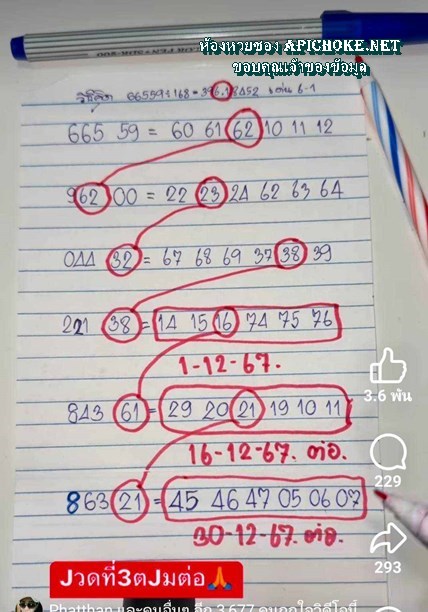 ห้องหวยซอง APICHOKE.NET
ขอบคุณเจ้าของข้อมูล
วิธีคิด 665591168 = 396.18452 เด่น 6-1
665 59 = 60 61 62 10 11 12
962 00 = 22 23 24 62 63 64
044 32 = 67 68 69 37 38 39
221 38 = 14 15 16 74 75 76
1-12-67.
843 61 = 29 20 21 19 10 11
16-12-67. ต่อ.
863 21 = 45 46 47 05 06 07
30-12-67. ต่อ.
3.6 พัน
229
293
Jวดที่3ตJมต่อ🙏
Phatthan และคนอื่นๆ อีก 3,677 คนถูกใจวิดีโอนี้